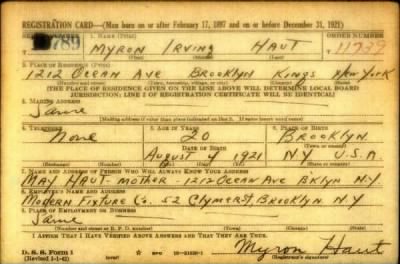 REGISTRATION CARD—(Men born on or after February 17, 1897 and on or before December 31, 1921)
SERIAL NUMBER 1. NAME (Print) ORDER NUMBER
789 MYRON IRVING HAUT 11739
(First) (Middle) (Last)
2. PLACE OF RESIDENCE (Print)
1212 OCEAN AVE BROOKLYN KINGS NEW YORK
(Number and street) (Town, township, village, or city) (County) (State)
[THE PLACE OF RESIDENCE GIVEN ON THE LINE ABOVE WILL DETERMINE LOCAL BOARD
JURISDICTION; LINE 2 OF REGISTRATION CERTIFICATE WILL BE IDENTICAL]
3. MAILING ADDRESS
Same
(Mailing address if other than place indicated on line 2. If same insert word same)
4. TELEPHONE 5. AGE IN YEARS 6. PLACE OF BIRTH
None 20 BROOKLYN
DATE OF BIRTH (Town or county)
AUGUST 4 1921 N.Y. U.S.A.
(Exchange) (Number) (Mo.) (Day) (Yr.) (State or country)
7. NAME AND ADDRESS OF PERSON WHO WILL ALWAYS KNOW YOUR ADDRESS
MAY HAUT MOTHER - 1212 OCEAN AVE BKLYN N.Y.
8. EMPLOYER'S NAME AND ADDRESS
MODERN FIXTURE CO. 52 CLYMER ST. BROOKLYN NY
9. PLACE OF EMPLOYMENT OR BUSINESS
Same
(Number and street or R. F. D. number) (Town) (County) (State)
I AFFIRM THAT I HAVE VERIFIED ABOVE ANSWERS AND THAT THEY ARE TRUE.
D. S. S. Form 1
(Revised 1-1-42) (over) Myron Haut
(Registrant's signature)